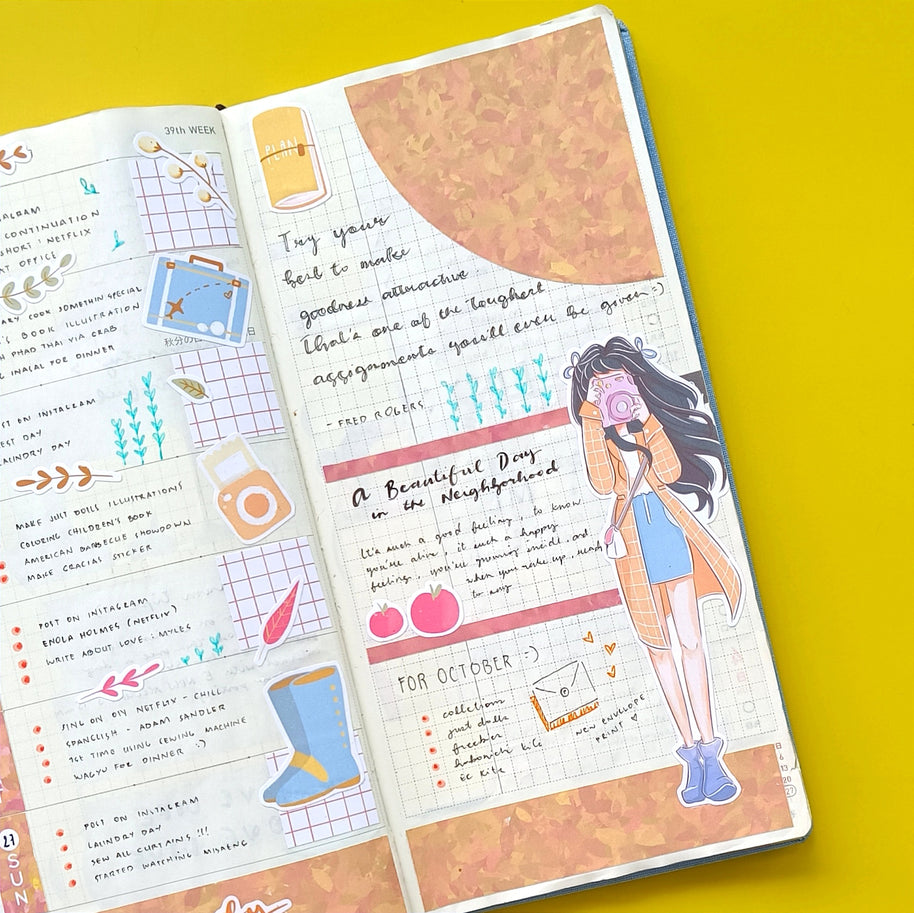 39th WEEK
CONTINUATION
SHORT : NETFLIX
AT OFFICE
COOK SOMETHIN SPECIAL
BOOK ILLUSTRATION
PHAD THAI VIA GRAB
FOR DINNER
秋分の
日
ON INSTAGRAM
DAY
LAUNDRY DAY
MAKE JUST DOLLS ILLUSTRATIONS
COLORING CHILDREN'S BOOK
AMERICAN BARBECUE SHOWDOWN
MAKE GRACIAS STICKER
POST ON INSTAGRAM
ENOLA HOLMES (NETFLIX)
WRITE ABOUT LOVE : MYLES
SING ON ON NETFLIX - CHILL
SPANGLISH - ADAM SANDLER
1ST TIME USING SEWING MACHINE
WAGYU FOR DINNER :)
27
SUN
POST ON INSTAGRAM
LAUNDRY DAY
SEW ALL CURTAINS !!!
STARTED WATCHING MISAENG
PLAN
Try your
best to make
goodness attractive
That's one of the toughest
assignments you'll ever be given :)
- FRED ROGERS
A Beautiful Day
in the Neighborhood
It's such a good feeling, to know
you're alive, it such a happy
feeling, you're growing inside, and
when you wake up, ready
to say
FOR OCTOBER :)
collection
just dolls
freebies
kit
EC Kits
NEW ENVELOPE
PRINT
日
6
13
20
27